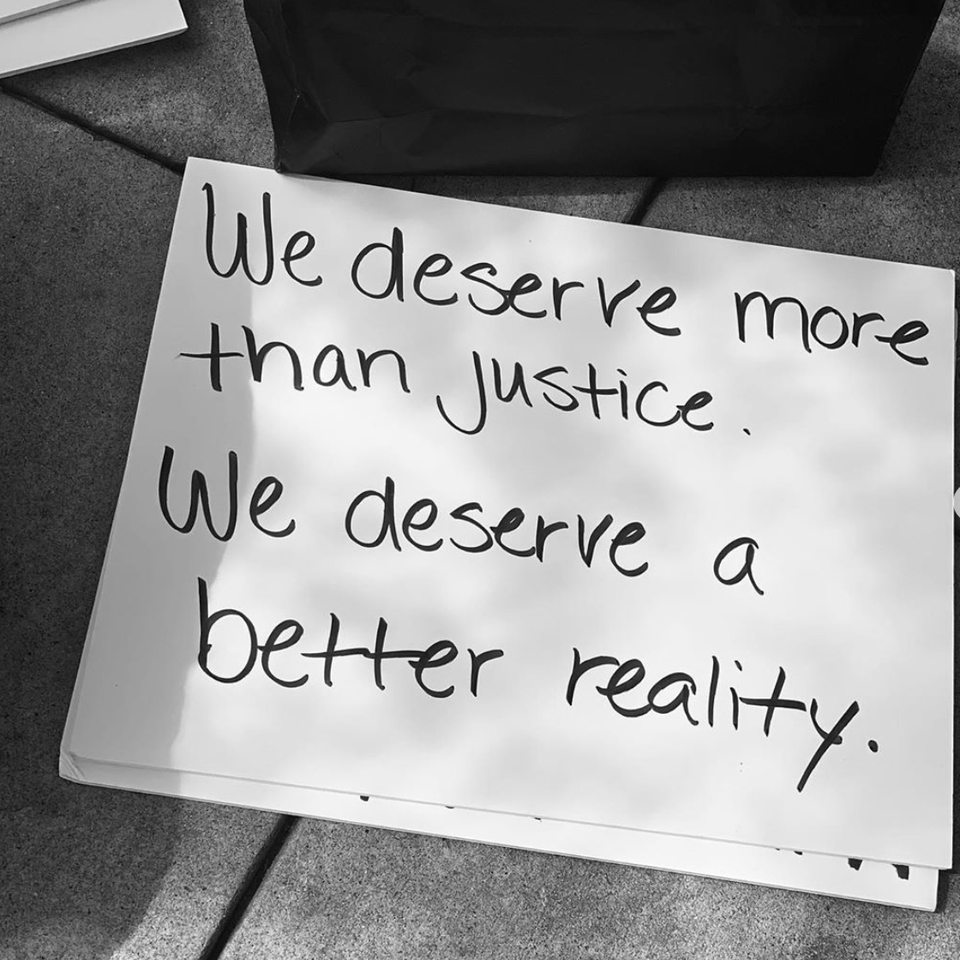 We deserve more
than justice.
We deserve a
better reality.